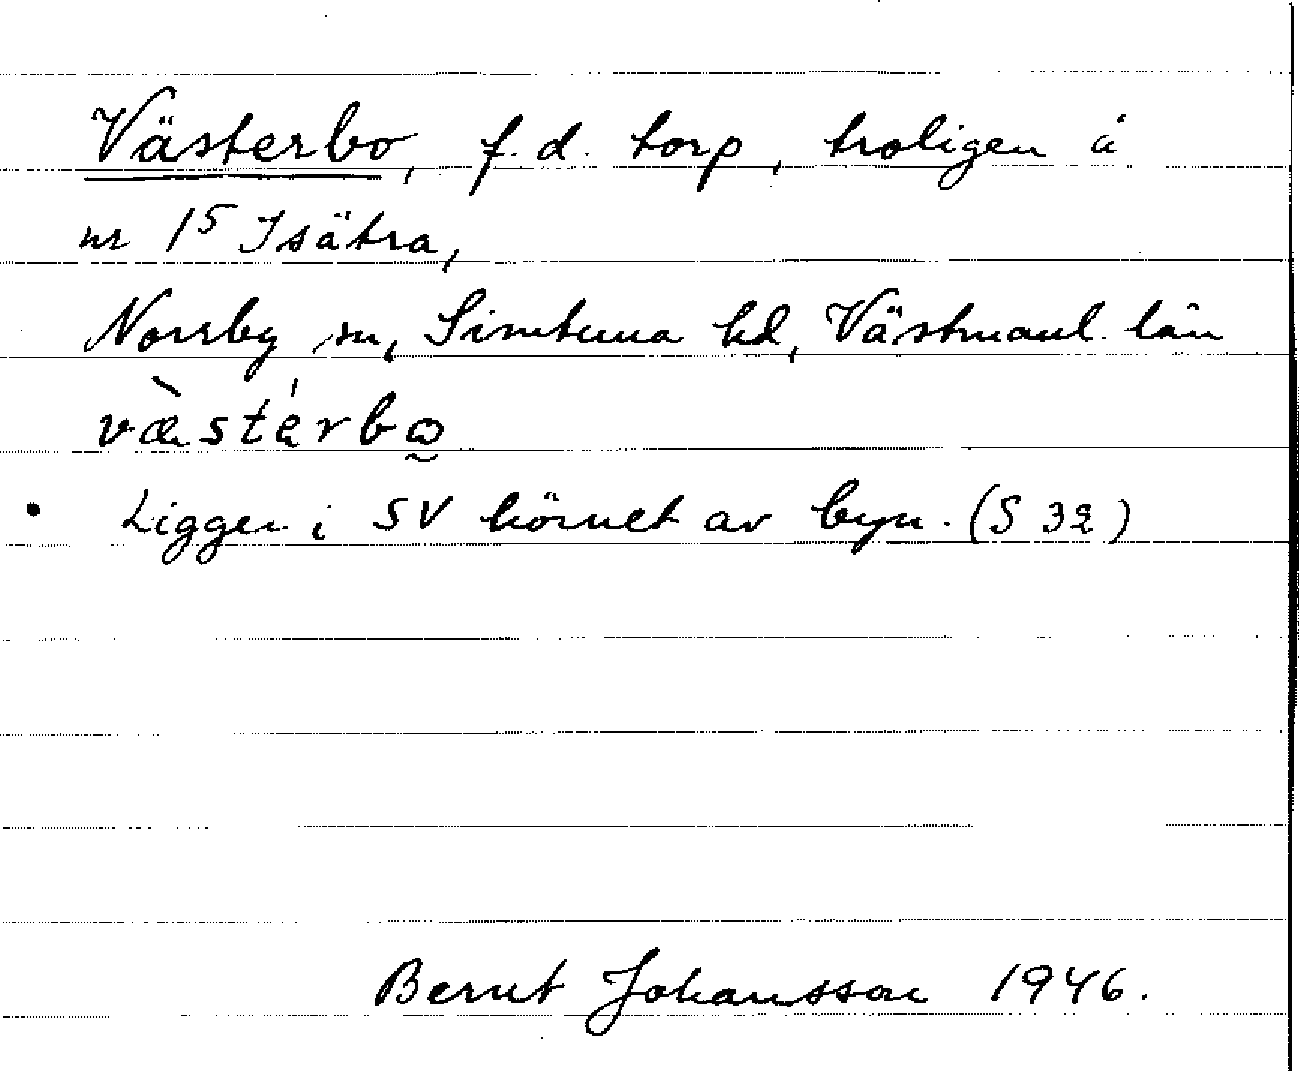 Västerbo, f. d. torp, troligen å
nr 1⁵ Isätra,
Norrby sn, Simtuna hd, Västmanl. län
væ̀stérbω̰
• Ligger i SV hörnet av byn. (S 32)
Bernt Johansson 1946.